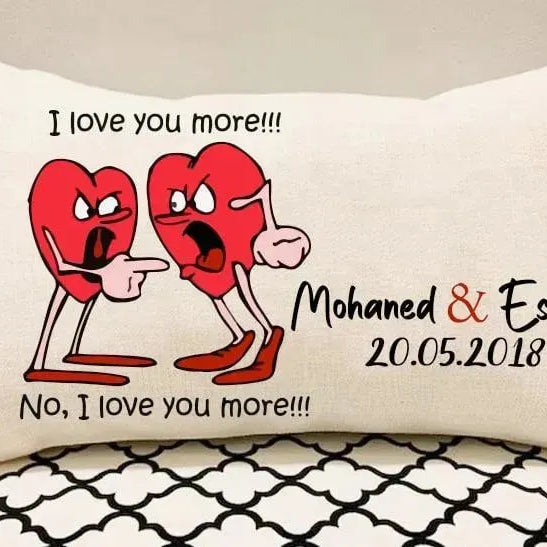 I love you more!!!
Mohaned &
20.05.2018
No, I love you more!!!